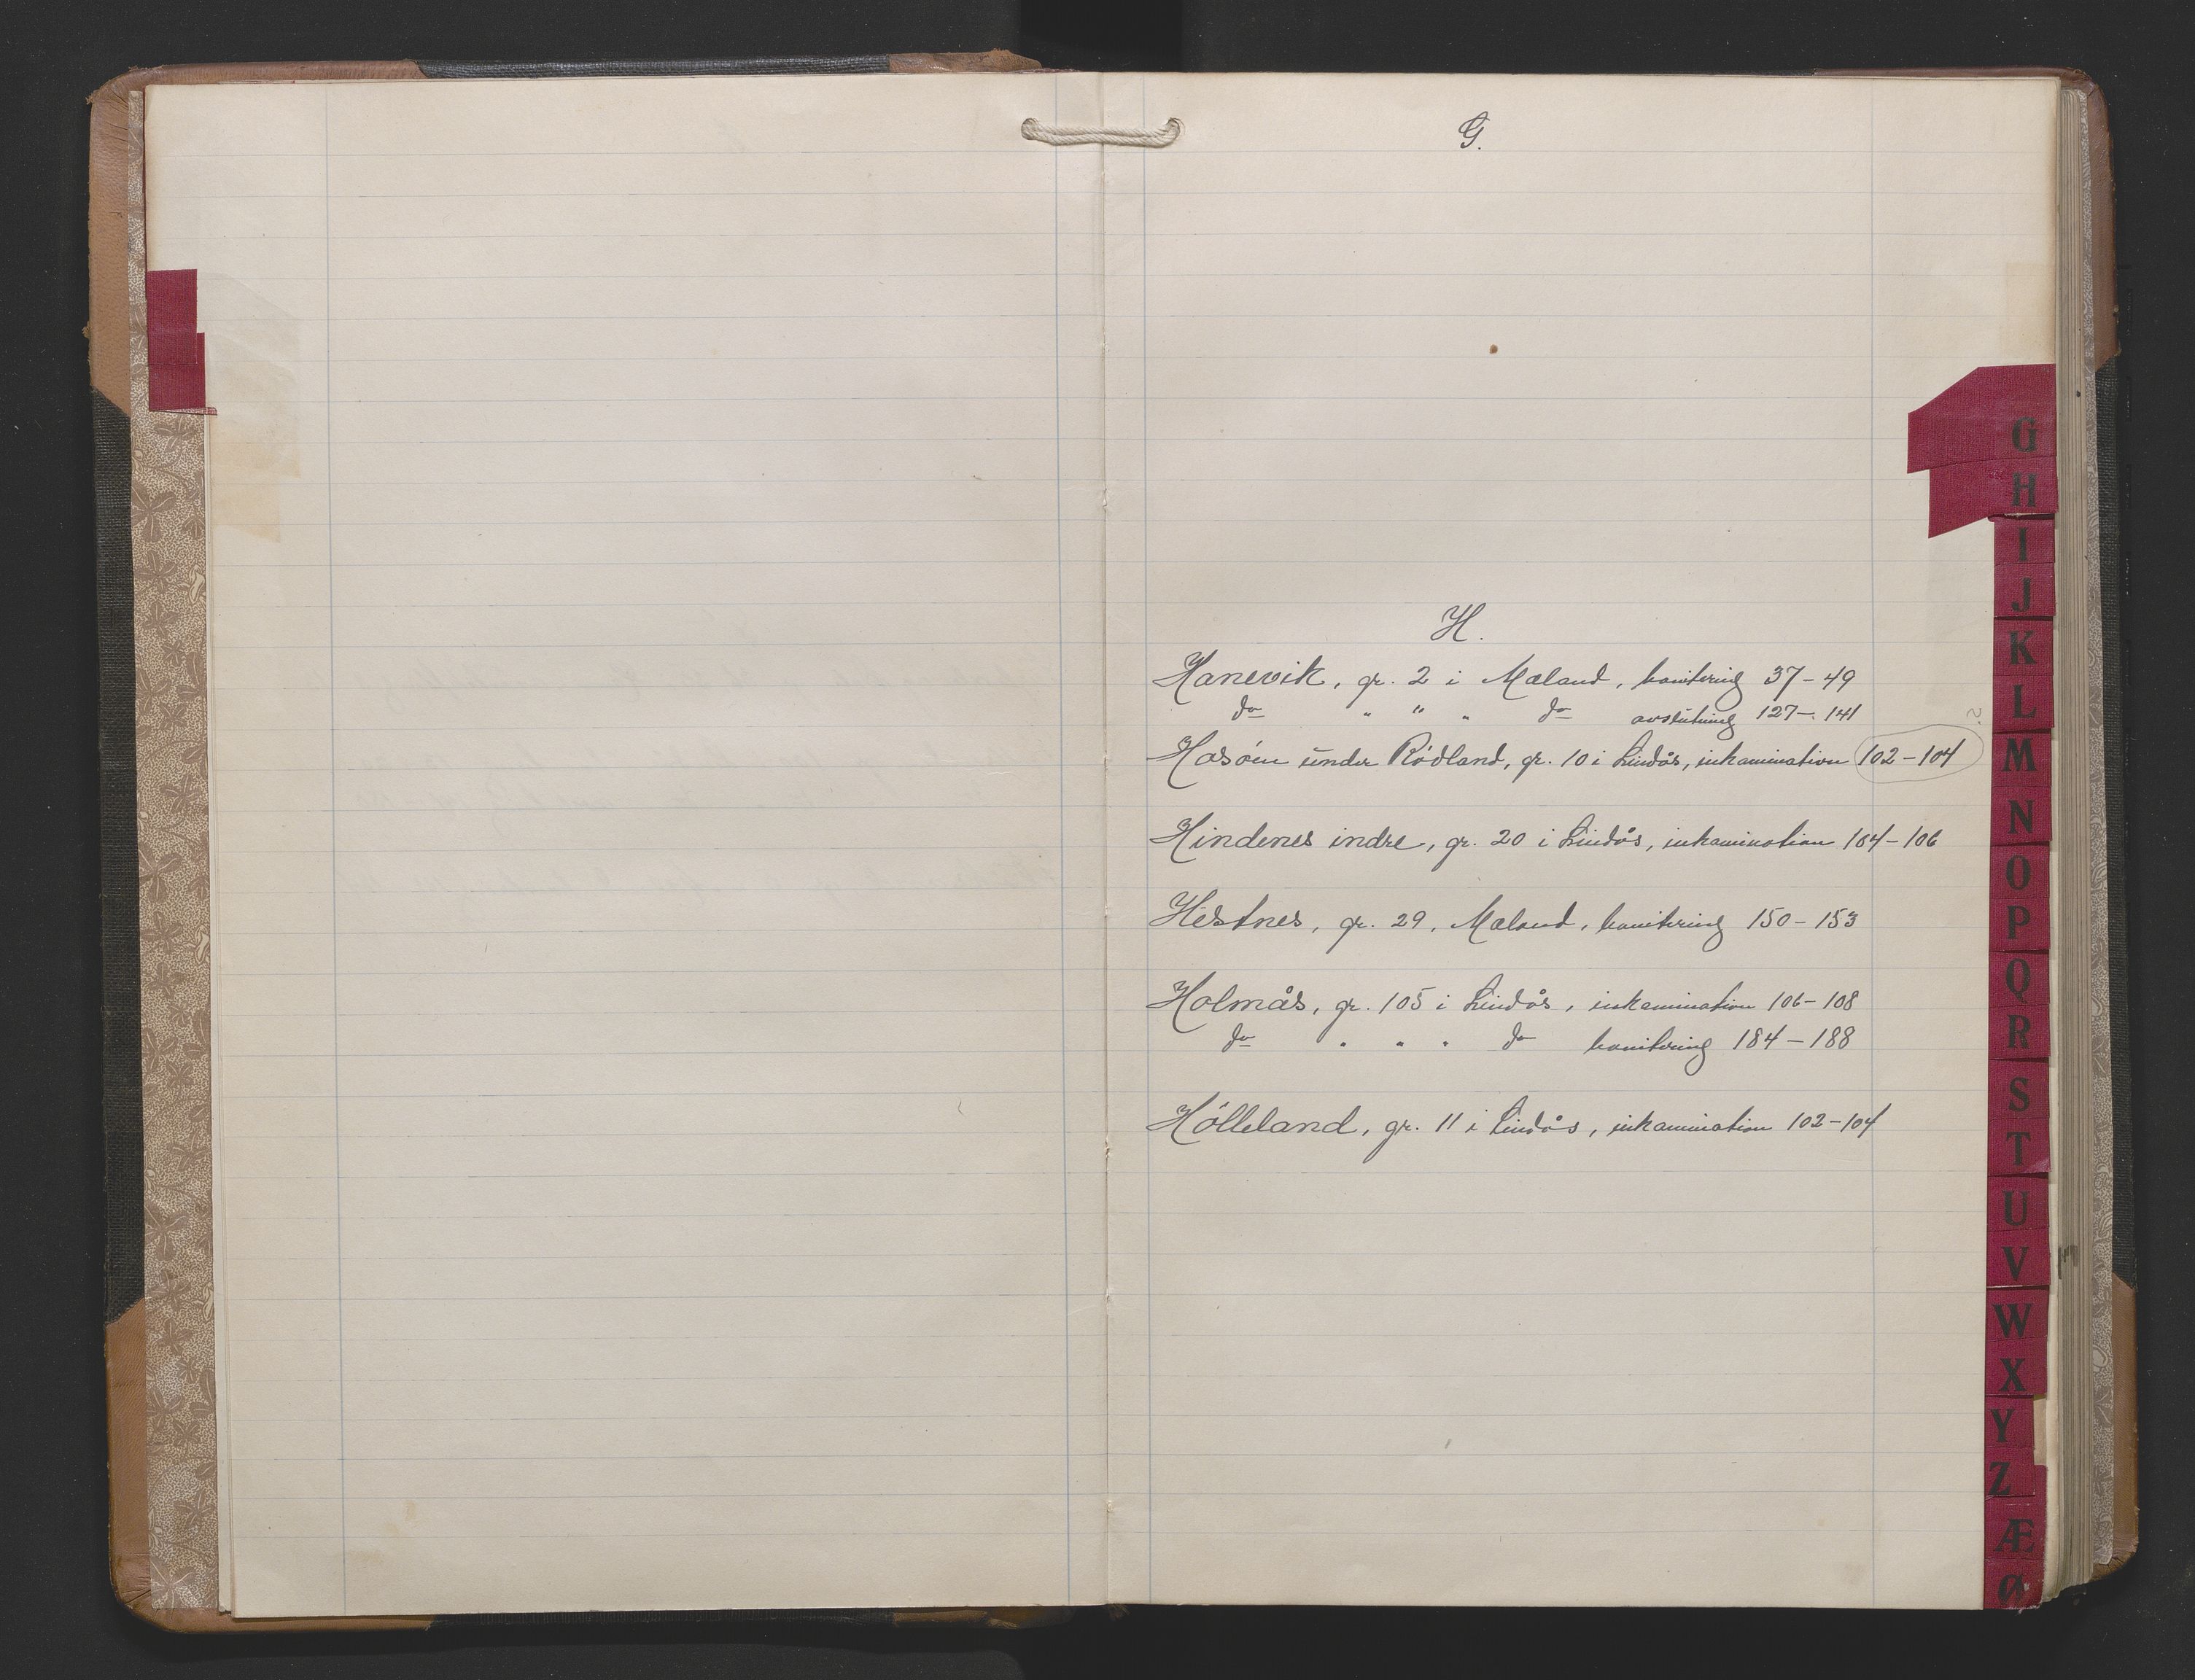 G.
H.
Hanevik, gr. 2 i Mæland, bonitering 37-49
do " " " do avslutning 127-141
Hosöin under Rödland, gr. 10 i Lindås, inkamination 102-104
Hindenes indre, gr. 20 i Lindås, inkamination 104-106
Hestnes, gr. 29, Mæland, bonitering 150-153
Holmås, gr. 105 i Lindås, inkamination 106-108
do " " " do bonitering 184-188
Hölleland, gr. 11 i Lindås, inkamination 102-104
G
H
I
J
K
L
M
N
O
P
Q
R
S
T
U
V
W
X
Y
Z
Æ
Ø